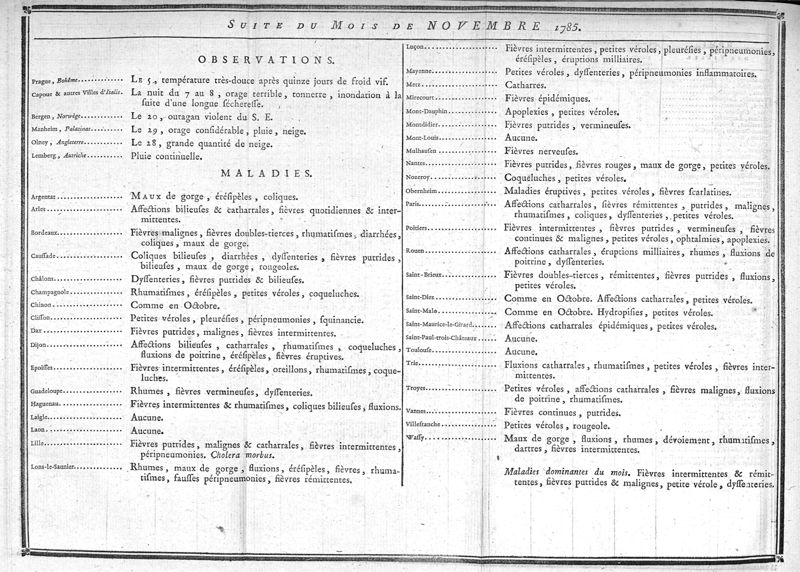 SUITE DU MOIS DE NOVEMBRE 1785.
OBSERVATIONS.
Prague, Bohême.......... LE 5, température très-douce après quinze jours de froid vif.
Capoue & autres Villes d'Italie. La nuit du 7 au 8, orage terrible, tonnerre, inondation à la
suite d'une longue séchereſſe.
Bergen, Norwège.......... Le 20, ouragan violent du S. E.
Manheim, Palatinat.......... Le 29, orage conſidérable, pluie, neige.
Olney, Angleterre.......... Le 28, grande quantité de neige.
Lemberg, Autriche.......... Pluie continuelle.
MALADIES.
Argentat.......... MAUX de gorge, éréſipèles, coliques.
Arles.......... Affections bilieuſes & catharrales, fièvres quotidiennes & inter-
mittentes.
Bordeaux.......... Fièvres malignes, fièvres doubles-tierces, rhumatiſmes, diarrhées,
coliques, maux de gorge.
Cauſſade.......... Coliques bilieuſes, diarrhées, dyſſenteries, fièvres putrides,
bilieuſes, maux de gorge, rougeoles.
Châlons.......... Dyſſenteries, fièvres putrides & bilieuſes.
Champagnole.......... Rhumatiſmes, éréſipèles, petites véroles, coqueluches.
Chinon.......... Comme en Octobre.
Cliſſon.......... Petites véroles, pleuréſies, péripneumonies, ſquinancie.
Dax.......... Fièvres putrides, malignes, fièvres intermittentes.
Dijon.......... Affections bilieuſes, catharrales, rhumatiſmes, coqueluches,
fluxions de poitrine, éréſipèles, fièvres éruptives.
Epoiſſes.......... Fièvres intermittentes, éréſipèles, oreillons, rhumatiſmes, coque-
luches.
Guadeloupe.......... Rhumes, fièvres vermineuſes, dyſſenteries.
Haguenau.......... Fièvres intermittentes & rhumatiſmes, coliques bilieuſes, fluxions.
Laigle.......... Aucune.
Laon.......... Aucune.
Lille.......... Fièvres putrides, malignes & catharrales, fièvres intermittentes,
péripneumonies. Cholera morbus.
Lons-le-Saunier.......... Rhumes, maux de gorge, fluxions, éréſipèles, fièvres, rhuma-
tiſmes, fauſſes péripneumonies, fièvres rémittentes.
Luçon.......... Fièvres intermittentes, petites véroles, pleuréſies, péripneumonies,
éréſipèles, éruptions milliaires.
Mayenne.......... Petites véroles, dyſſenteries, péripneumonies inflammatoires.
Metz.......... Catharres.
Mirecourt.......... Fièvres épidémiques.
Mont-Dauphin.......... Apoplexies, petites véroles.
Montdidier.......... Fièvres putrides, vermineuſes.
Mont-Louis.......... Aucune.
Mulhauſen.......... Fièvres nerveuſes.
Nantes.......... Fièvres putrides, fièvres rouges, maux de gorge, petites véroles.
Nozeroy.......... Coqueluches, petites véroles.
Obernheim.......... Maladies éruptives, petites véroles, fièvres ſcarlatines.
Paris.......... Affections catharrales, fièvres rémittentes, putrides, malignes,
rhumatiſmes, coliques, dyſſenteries, petites véroles.
Poitiers.......... Fièvres intermittentes, fièvres putrides, vermineuſes, fièvres
continues & malignes, petites véroles, ophtalmies, apoplexies.
Rouen.......... Affections catharrales, éruptions milliaires, rhumes, fluxions de
poitrine, dyſſenteries.
Saint-Brieux.......... Fièvres doubles-tierces, rémittentes, fièvres putrides, fluxions,
petites véroles.
Saint-Diez.......... Comme en Octobre. Affections catharrales, petites véroles.
Saint-Malo.......... Comme en Octobre. Hydropiſies, petites véroles.
Saint-Maurice-le-Girard.......... Affections catharrales épidémiques, petites véroles.
Saint-Paul-trois-Châteaux.......... Aucune.
Toulouſe.......... Aucune.
Trie.......... Fluxions catharrales, rhumatiſmes, petites véroles, fièvres inter-
mittentes.
Troyes.......... Petites véroles, affections catharrales, fièvres malignes, fluxions
de poitrine, rhumatiſmes.
Vannes.......... Fièvres continues, putrides.
Villefranche.......... Petites véroles, rougeole.
Waſſy.......... Maux de gorge, fluxions, rhumes, dévoiement, rhumatiſmes,
dartres, fièvres intermittentes.
Maladies dominantes du mois. Fièvres intermittentes & rémit-
tentes, fièvres putrides & malignes, petite vérole, dyſſenteries.